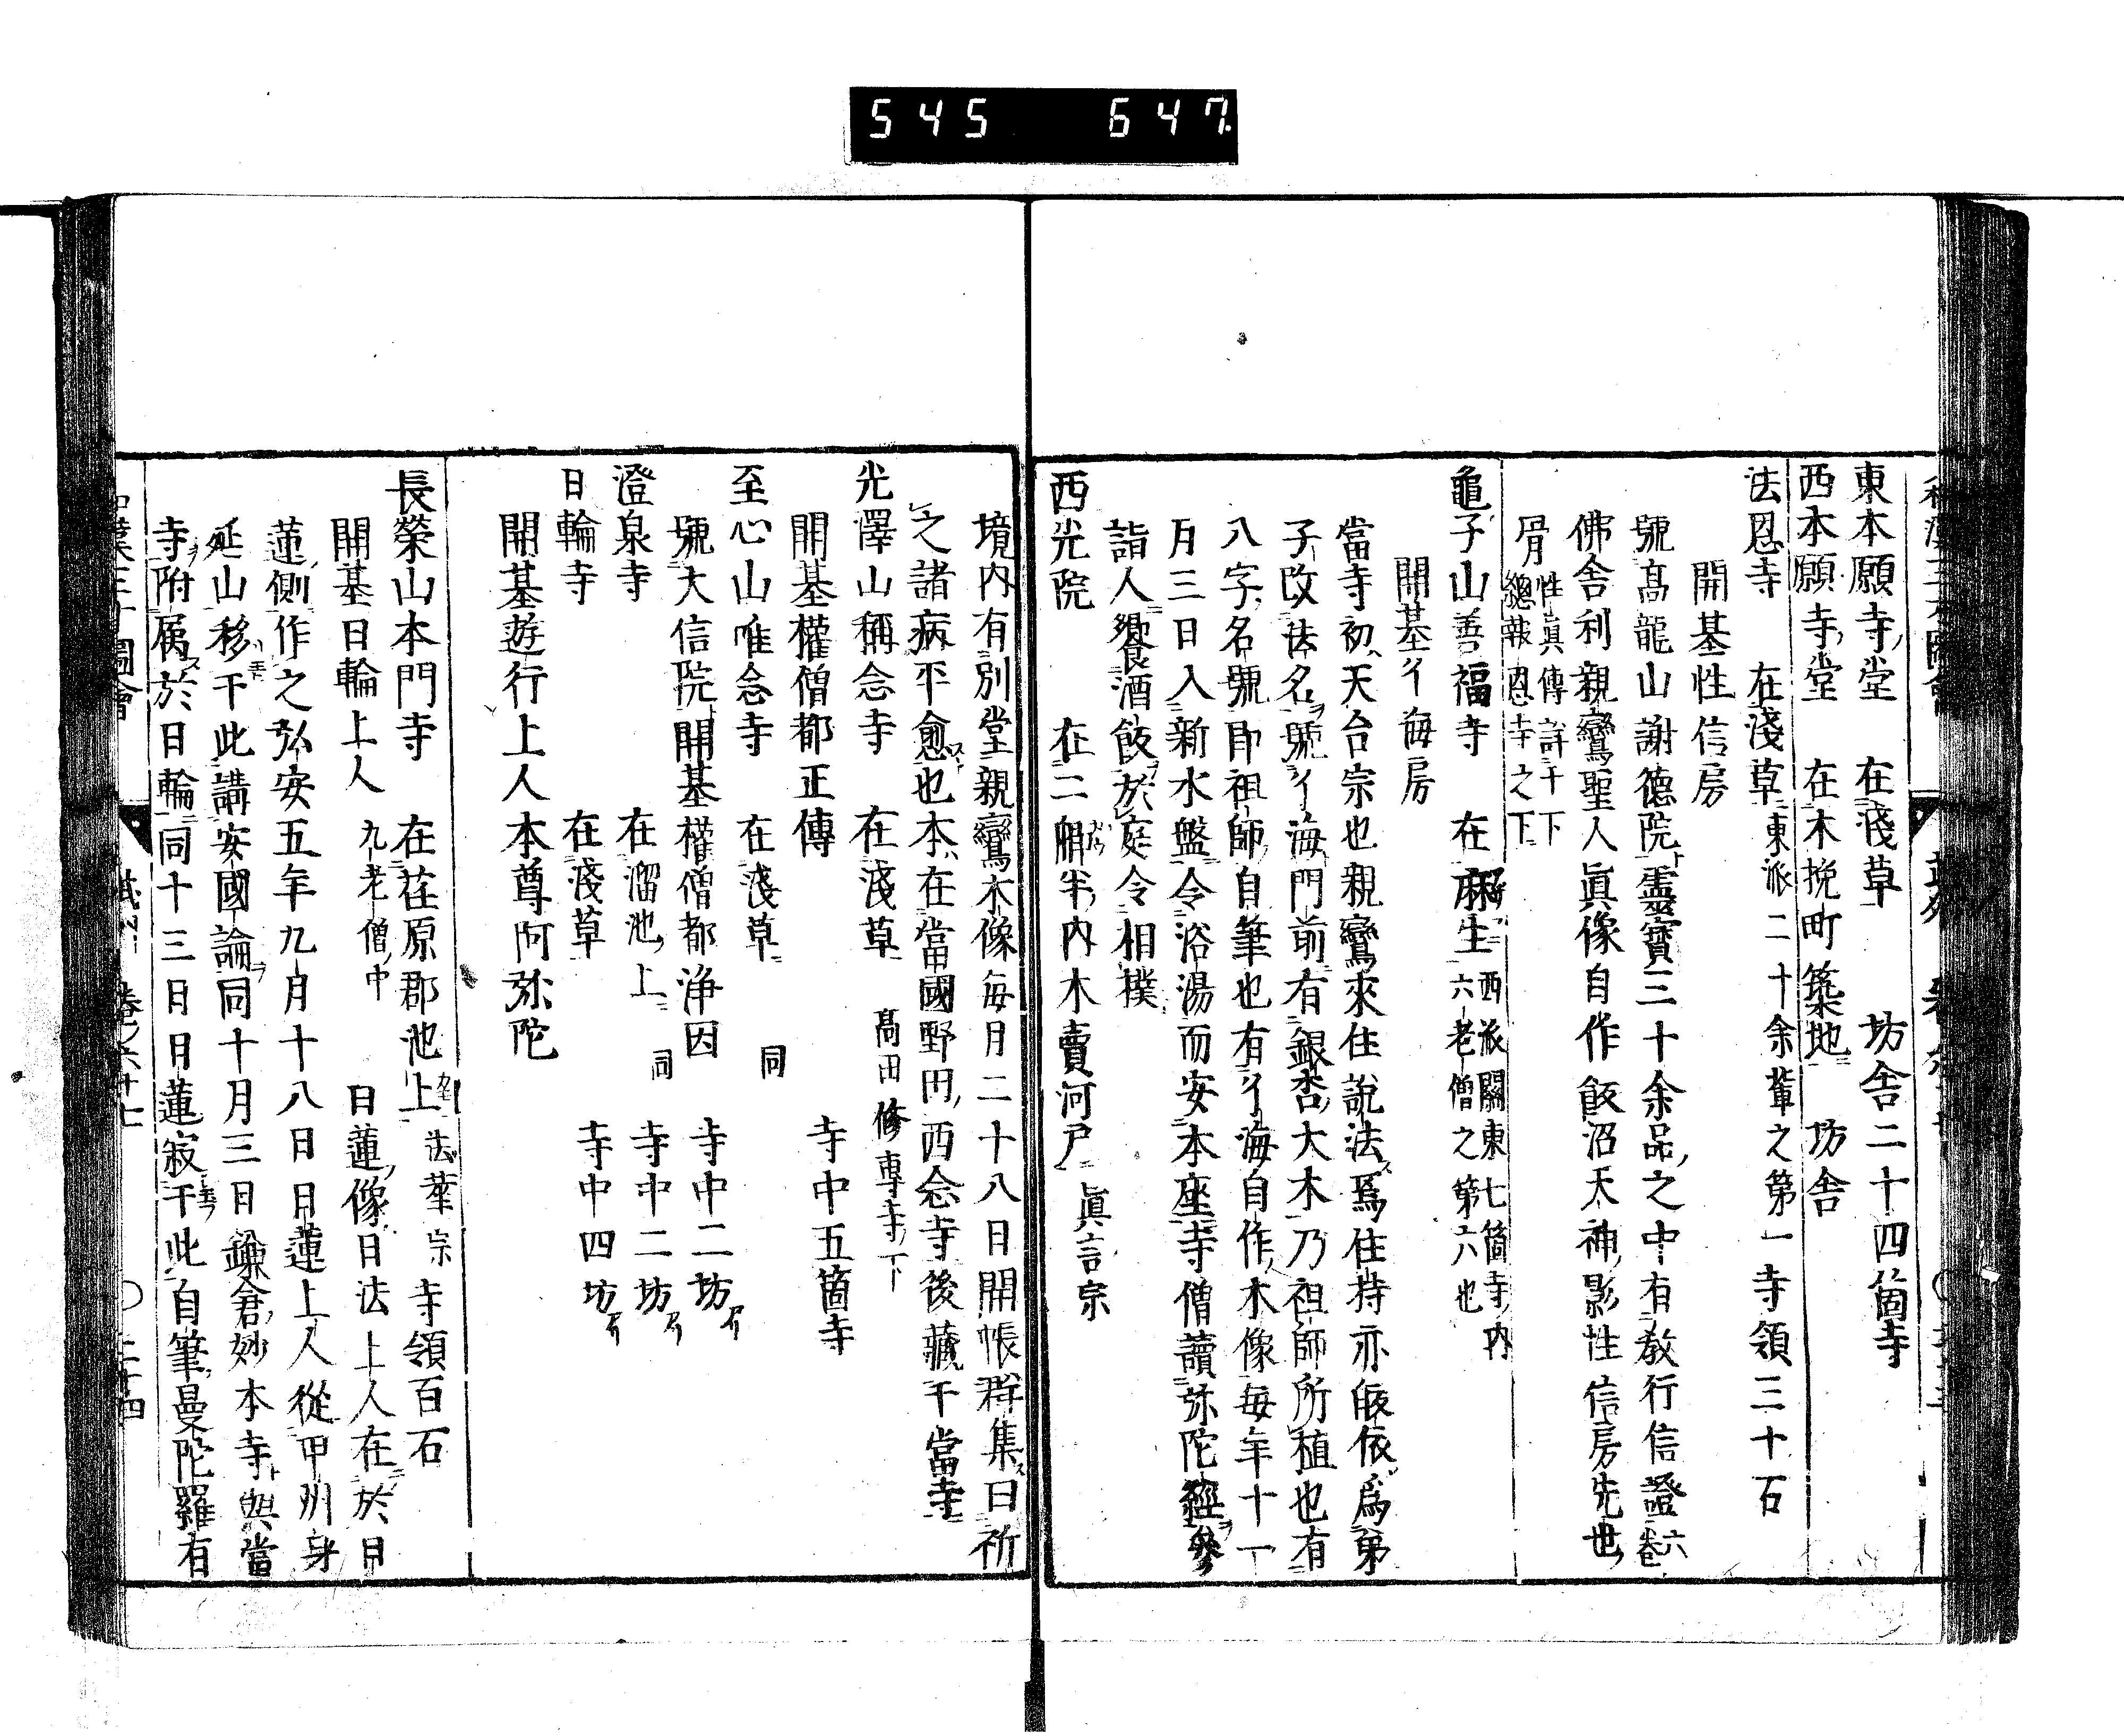 545 647
東本願寺堂 在淺草 坊舎二十四箇寺
西本願寺堂 在木挽町築地 坊舎
法恩寺 在淺草 東派二十余輩之第一 寺領三十石
開基性信房
號髙龍山謝德院靈寳三十余品之中有教行信證六卷
佛舎利親鸞聖人眞像自作飯沼天神影性信房先也
骨 性眞傳詳于下
總報恩寺之下
龜子山善福寺 在麻生 西派關東七箇寺内
六老僧之第六也
開基了海房
當寺初天台宗也親鸞來住說法爲住持亦皈依爲第
子改法名號了海門前有銀杏大木乃祖師所植也有
八字名號即祖師自筆也有了海自作木像毎年十一
月三日入新水盤令浴湯而安本座寺僧讀弥陀經參
詣人饗酒飯於庭令相撲
西光院 在二 内木賣河戸 眞言宗
境内有別堂親鸞木像毎月二十八日開帳群集曰祈
之諸病平愈也本在當國野田西念寺後藏于當寺
光澤山稱念寺 在淺草 髙田修專寺下 寺中五箇寺
開基權僧都正傳
至心山唯念寺 在淺草 同 寺中二坊
號大信院開基權僧都浄因
澄泉寺 在溜池上 同 寺中二坊
日輪寺 在淺草 寺中四坊
開基遊行上人本尊阿弥陀
長榮山本門寺 在荏原郡池上 法華宗 寺領百石
開基日輪上人 九老僧中 日蓮像日法上人在於日
蓮側作之弘安五年九月十八日日蓮上人從甲州身
延山移于此講安國論同十月三日鎌倉妙本寺與當
寺附属於日輪同十三日日蓮寂于此自筆曼陀羅有
和漢三才圖會 武州 卷ノ六十七 〇二十四